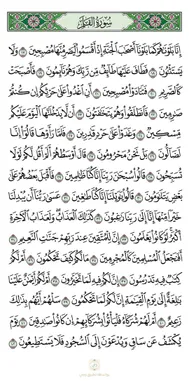 سُورَةُ القَلَمِ
إِنَّا بَلَوْنَٰهُمْ كَمَا بَلَوْنَآ أَصْحَٰبَ ٱلْجَنَّةِ إِذْ أَقْسَمُوا۟ لَيَصْرِمُنَّهَا مُصْبِحِينَ ١٧ وَلَا
يَسْتَثْنُونَ ١٨ فَطَافَ عَلَيْهَا طَآئِفٌ مِّن رَّبِّكَ وَهُمْ نَآئِمُونَ ١٩ فَأَصْبَحَتْ
كَٱلصَّرِيمِ ٢٠ فَتَنَادَوْا۟ مُصْبِحِينَ ٢١ أَنِ ٱغْدُوا۟ عَلَىٰ حَرْثِكُمْ إِن كُنتُمْ
صَٰرِمِينَ ٢٢ فَٱنطَلَقُوا۟ وَهُمْ يَتَخَٰفَتُونَ ٢٣ أَن لَّا يَدْخُلَنَّهَا ٱلْيَوْمَ عَلَيْكُم
مِّسْكِينٌ ٢٤ وَغَدَوْا۟ عَلَىٰ حَرْدٍ قَٰدِرِينَ ٢٥ فَلَمَّا رَأَوْهَا قَالُوٓا۟ إِنَّا
لَضَآلُّونَ ٢٦ بَلْ نَحْنُ مَحْرُومُونَ ٢٧ قَالَ أَوْسَطُهُمْ أَلَمْ أَقُل لَّكُمْ لَوْلَا
تُسَبِّحُونَ ٢٨ قَالُوا۟ سُبْحَٰنَ رَبِّنَآ إِنَّا كُنَّا ظَٰلِمِينَ ٢٩ فَأَقْبَلَ بَعْضُهُمْ عَلَىٰ
بَعْضٍ يَتَلَٰوَمُونَ ٣٠ قَالُوا۟ يَٰوَيْلَنَآ إِنَّا كُنَّا طَٰغِينَ ٣١ عَسَىٰ رَبُّنَآ أَن يُبْدِلَنَا
خَيْرًا مِّنْهَآ إِنَّآ إِلَىٰ رَبِّنَا رَٰغِبُونَ ٣٢ كَذَٰلِكَ ٱلْعَذَابُ وَلَعَذَابُ ٱلْءَاخِرَةِ
أَكْبَرُ لَوْ كَانُوا۟ يَعْلَمُونَ ٣٣ إِنَّ لِلْمُتَّقِينَ عِندَ رَبِّهِمْ جَنَّٰتِ ٱلنَّعِيمِ ٣٤
أَفَنَجْعَلُ ٱلْمُسْلِمِينَ كَٱلْمُجْرِمِينَ ٣٥ مَا لَكُمْ كَيْفَ تَحْكُمُونَ ٣٦ أَمْ لَكُمْ
كِتَٰبٌ فِيهِ تَدْرُسُونَ ٣٧ إِنَّ لَكُمْ فِيهِ لَمَا تَخَيَّرُونَ ٣٨ أَمْ لَكُمْ أَيْمَٰنٌ عَلَيْنَا
بَٰلِغَةٌ إِلَىٰ يَوْمِ ٱلْقِيَٰمَةِ إِنَّ لَكُمْ لَمَا تَحْكُمُونَ ٣٩ سَلْهُمْ أَيُّهُم بِذَٰلِكَ
زَعِيمٌ ٤٠ أَمْ لَهُمْ شُرَكَآءُ فَلْيَأْتُوا۟ بِشُرَكَآئِهِمْ إِن كَانُوا۟ صَٰدِقِينَ ٤١ يَوْمَ
يُكْشَفُ عَن سَاقٍ وَيُدْعَوْنَ إِلَى ٱلسُّجُودِ فَلَا يَسْتَطِيعُونَ ٤٢